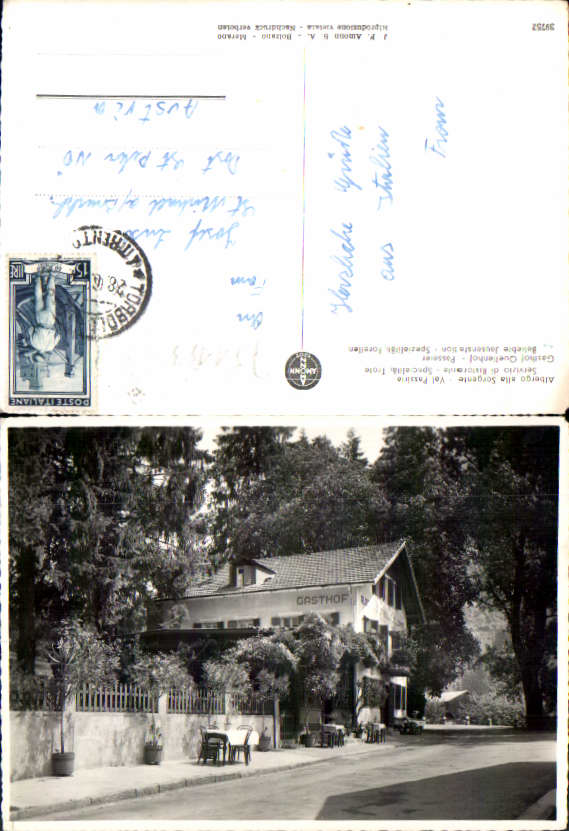 Albergo alla Sorgente - Val Passiria
Servizio di Ristorante - Specialità Trote
Gasthof Quellenhof - Passeier
Beliebte Jausenstation - Spezialität Forellen
Herzliche Grüße
aus Italien
Franz
AMONN
POSTE ITALIANE
LIRE 15
TORBOLE
(TRENTO)
An
Fam
Josef
St
Post St Peter NÖ
Austria
J. F. Amonn S. A. - Bolzano - Merano
Riproduzione vietata - Nachdruck verboten
39752
GASTHOF